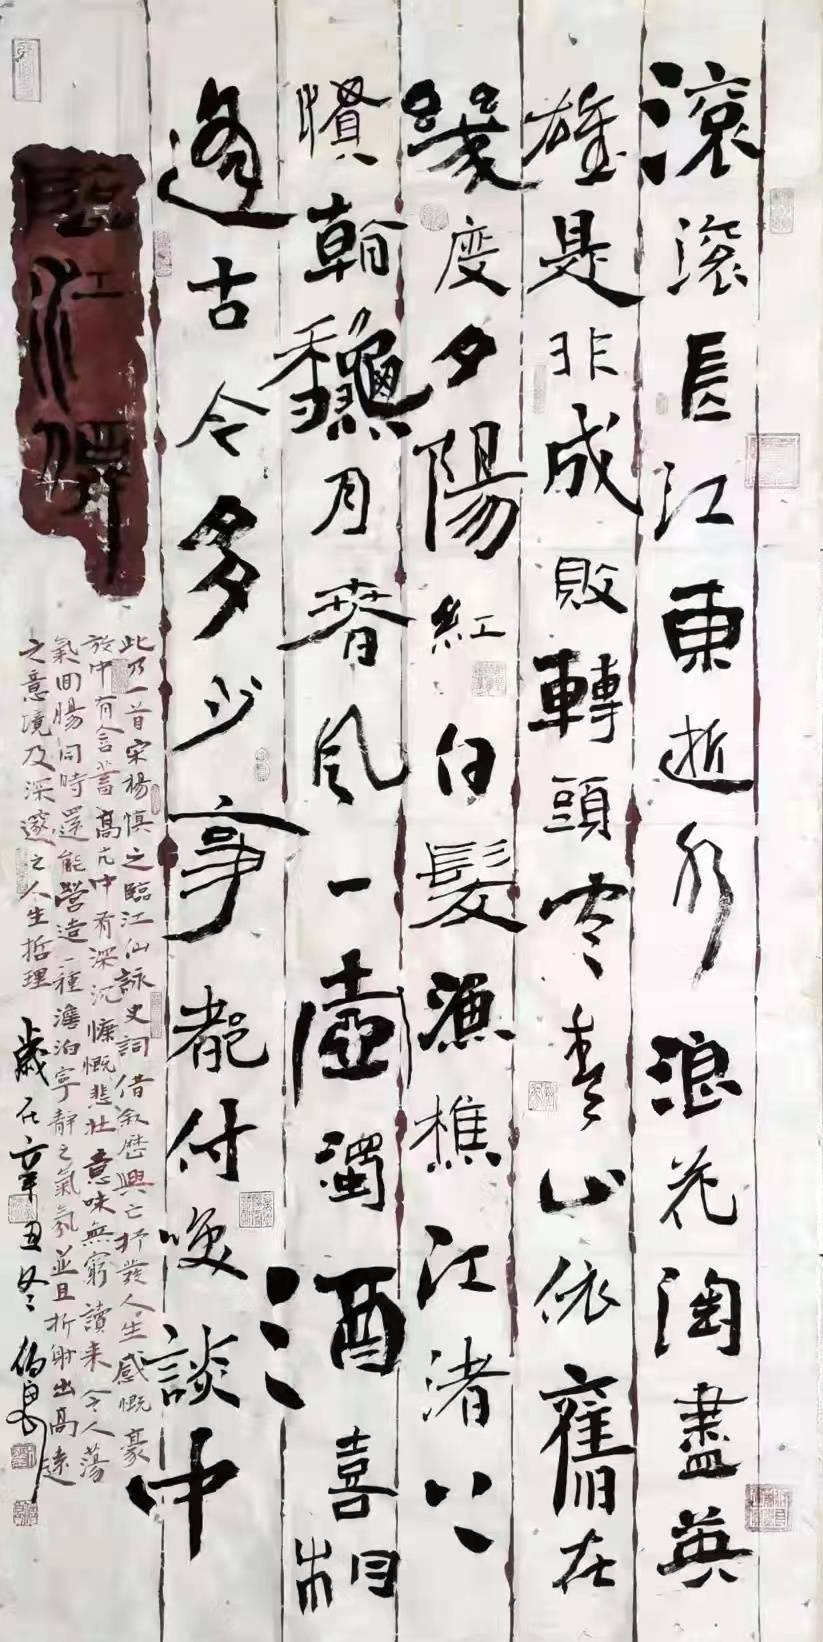 滚滚長江東逝水浪花淘盡英
雄是非成敗轉頭空青山依舊在
幾度夕陽紅白髮漁樵江渚上
慣看龝月春风一壺濁酒喜相
逢古今多少事都付笑談中
臨江僊
此乃一首宋楊慎之臨江仙詠史詞借叙歷興亡抒發人生感慨豪
放中有含蓄高亢中有深沉慷慨悲壯意味無窮讀来令人蕩
氣回腸同時還能營造一種澹泊寧靜之氣氛並且折射出高遠
之意境及深邃之人生哲理
歲在辛丑冬